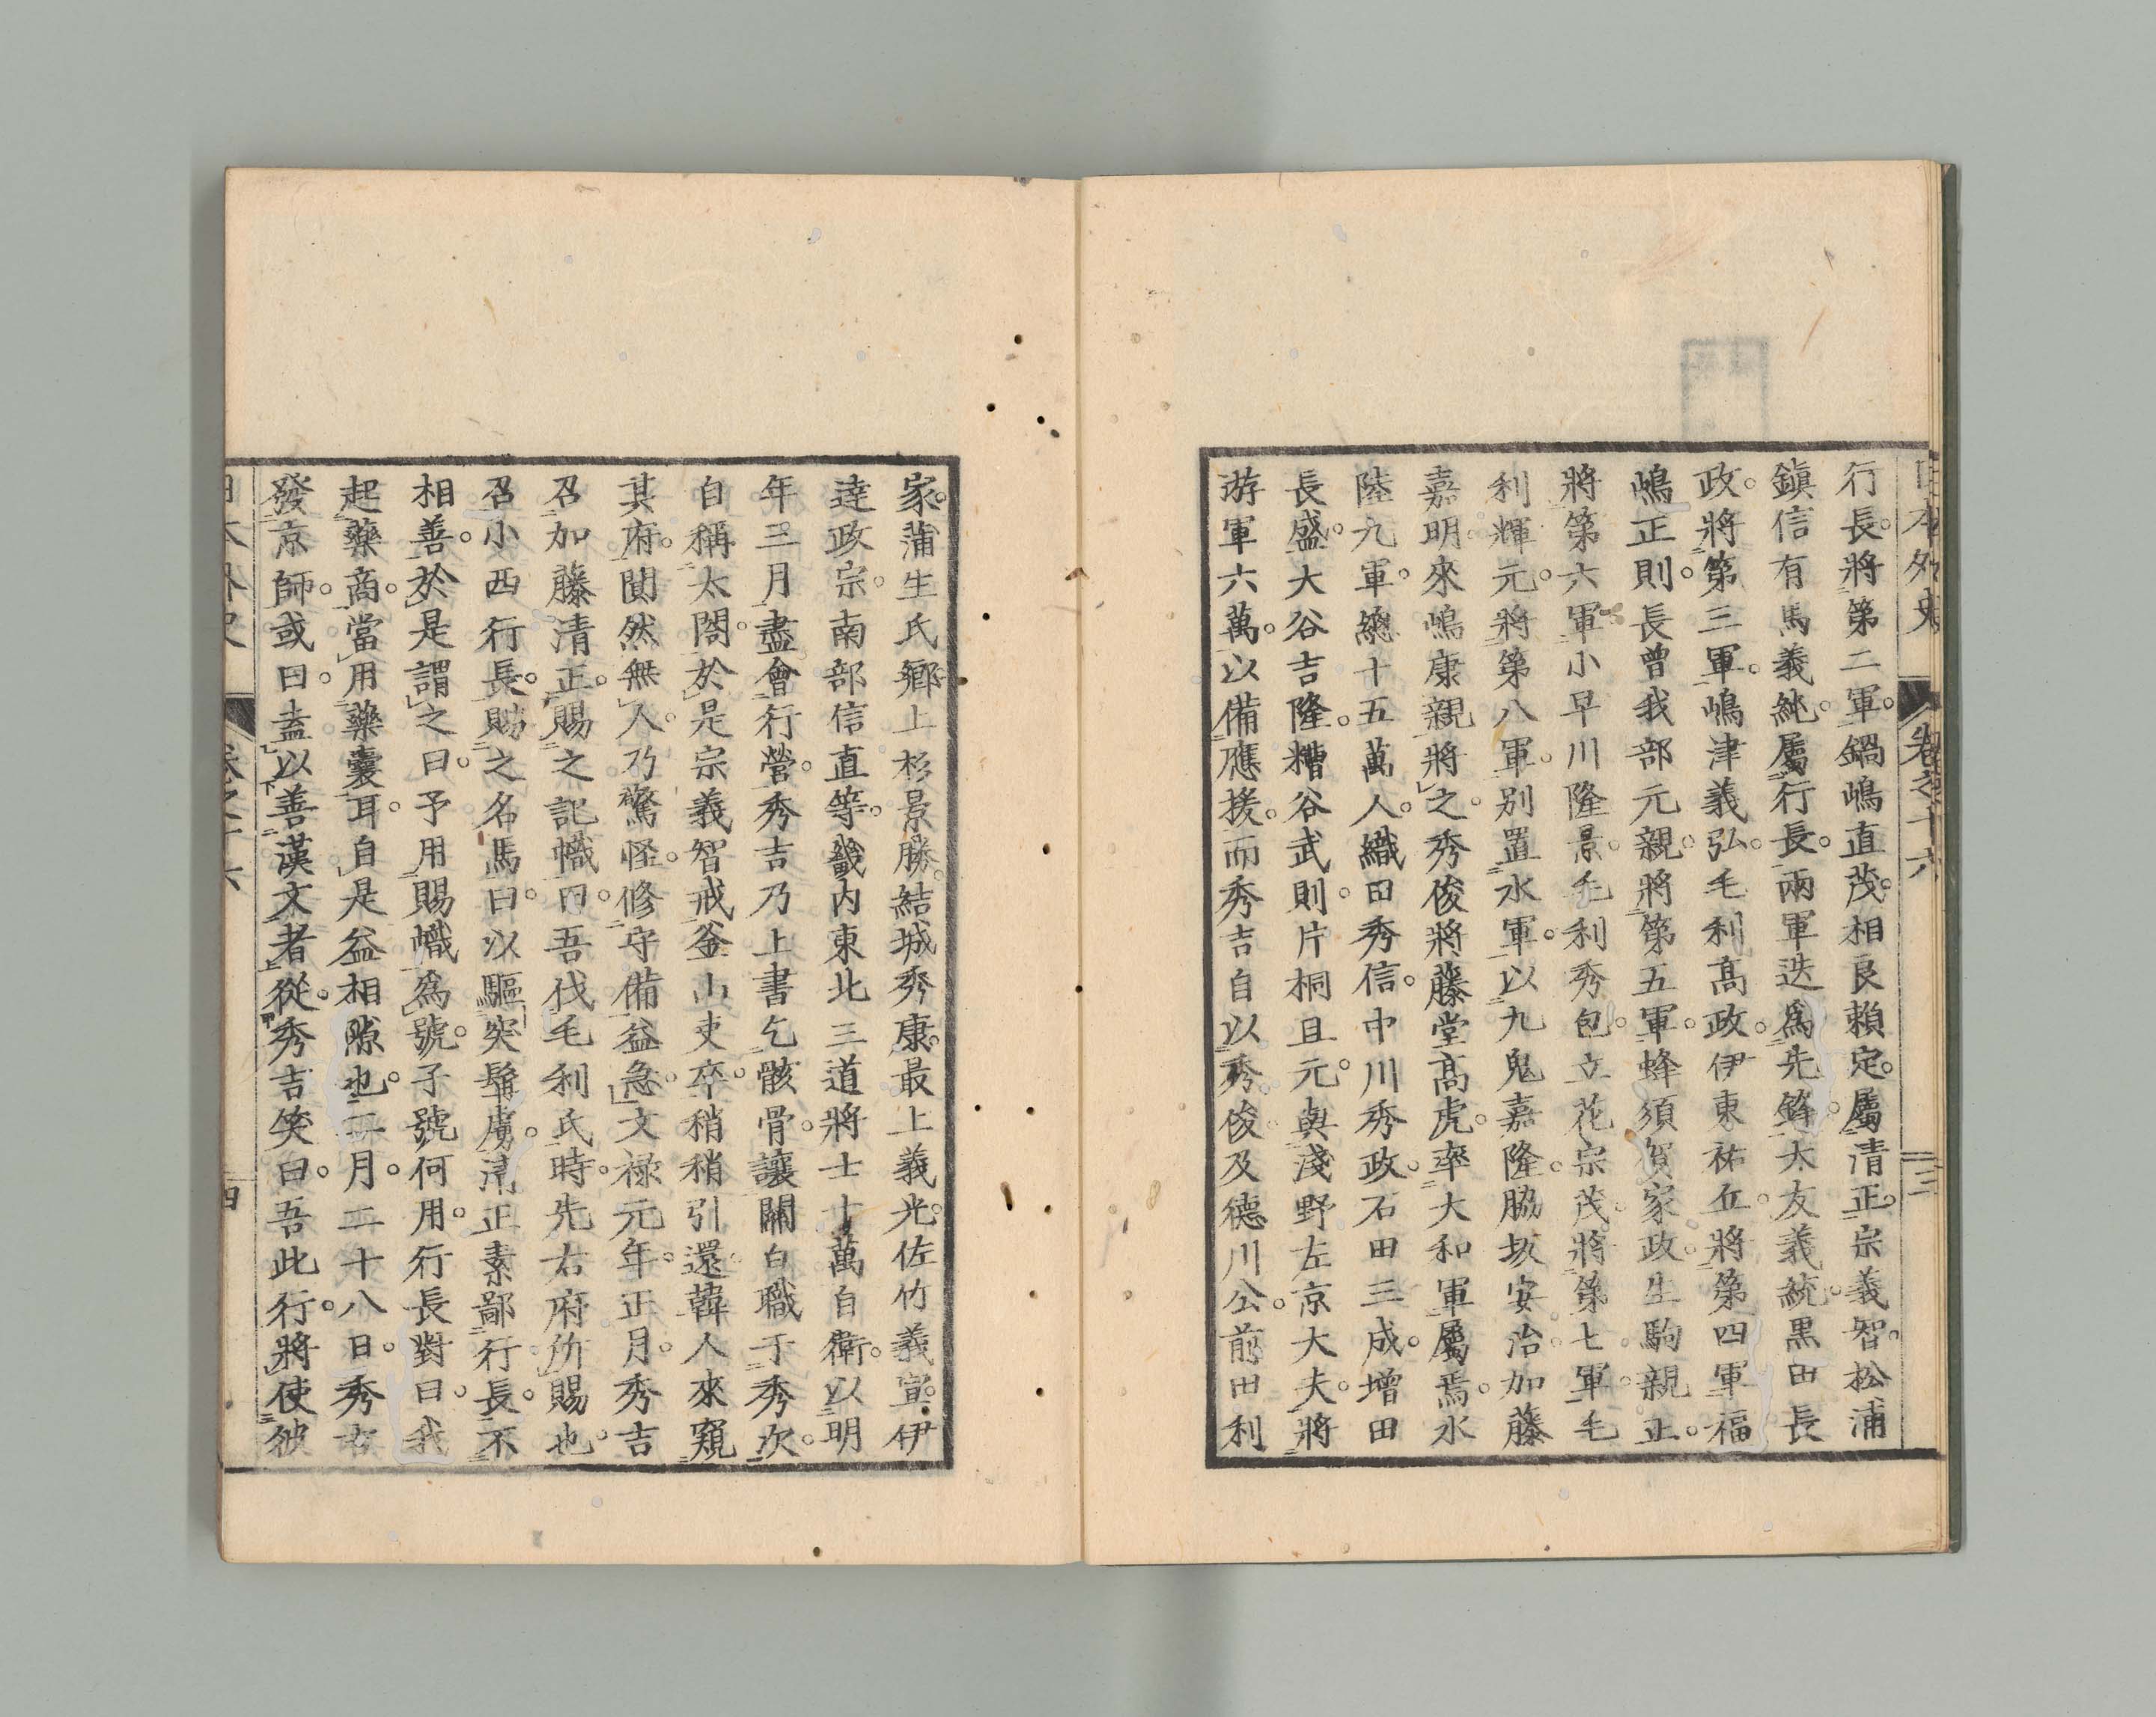 日本外史 卷之十六 三
行長。將第二軍。鍋嶋直茂。相良賴定。屬清正。宗義智。松浦
鎮信有馬義純。屬行長。兩軍迭爲先鋒。大友義統。黒田長
政。將第三軍。嶋津義弘。毛利高政。伊東祐丘。將第四軍。福
嶋正則。長曾我部元親。將第五軍。蜂須賀家政。生駒親正。
將第六軍。小早川隆景。毛利秀包。立花宗茂。將第七軍。毛
利輝元。將第八軍。別置水軍。以九鬼嘉隆。脇坂安治。加藤
嘉明。來嶋康親。將之。秀俊將藤堂高虎。率大和軍屬焉。水
陸九軍。總十五萬人。織田秀信。中川秀政。石田三成。增田
長盛。大谷吉隆。糟谷武則。片桐且元。與淺野左京大夫。將
游軍六萬。以備應援。而秀吉自以秀俊及德川公。前田利
家。蒲生氏鄉。上杉景勝。結城秀康。最上義光。佐竹義宣。伊
達政宗。南部信直等。畿内東北三道將士十萬自衛。以明
年三月。盡會行營。秀吉乃上書乞骸骨。讓關白職于秀次。
自稱太閤。於是宗義智戒釜山吏卒。稍稍引還。韓人來窺
其府。閴然無人。乃驚怪。修守備益急。文禄元年。正月。秀吉
召加藤清正。賜之記幟。曰。吾伐毛利氏時。先右府所賜也。
召小西行長。賜之名馬。曰。以驅突髯虜。清正素鄙行長。不
相善。於是謂之曰。予用賜幟爲號。子號何用。行長對曰。我
起藥商。當用藥囊耳。自是益相隙也。二月。二十八日。秀吉
發京師。或曰。盍以善漢文者從。秀吉笑曰。吾此行。將使彼
日本外史 卷之十六 四